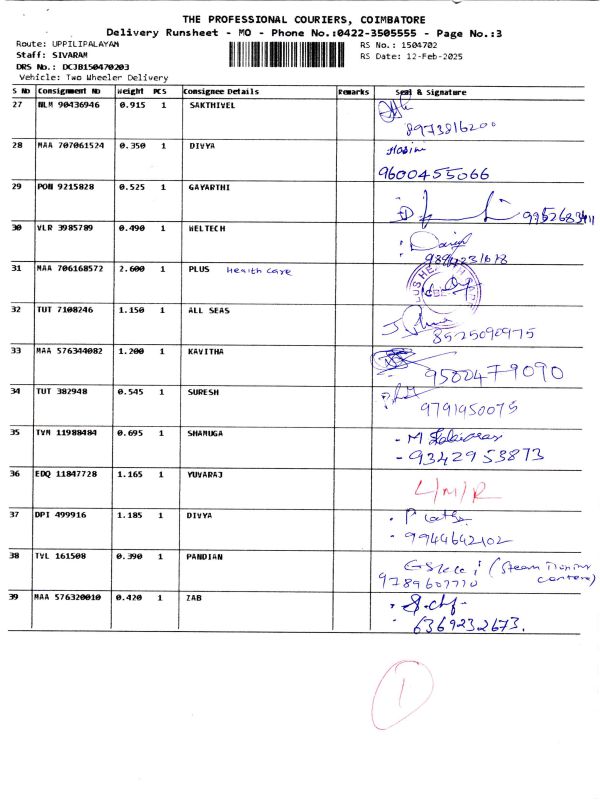 THE PROFESSIONAL COURIERS, COIMBATORE
Delivery Runsheet - MO - Phone No.:0422-3505555 - Page No.:3
Route: UPPILIPALAYAM RS No.: 1504702
Staff: SIVARAM RS Date: 12-Feb-2025
DRS No.: DCJB150470203
Vehicle: Two Wheeler Delivery
S No Consignment No Weight PCS Consignee Details Remarks Seal & Signature
27 NLM 90436946 0.915 1 SAKTHIVEL
8973816200
28 MAA 707061524 0.350 1 DIVYA
9600455066
29 PON 9215828 0.525 1 GAYARTHI
30 VLR 3985789 0.490 1 WELTECH
31 MAA 706168572 2.600 1 PLUS Health care
32 TUT 7108246 1.150 1 ALL SEAS
8525090975
33 MAA 576344082 1.200 1 KAVITHA
9500479090
34 TUT 382948 0.545 1 SURESH
9791950075
35 TVM 11988484 0.695 1 SHAMUGA
- 9342953873
36 EDQ 11847728 1.165 1 YUVARAJ
L/M/R
37 DPI 499916 1.185 1 DIVYA
- 9944642102
38 TVL 161508 0.390 1 PANDIAN
39 MAA 576320010 0.420 1 ZAB
6369232673.
1